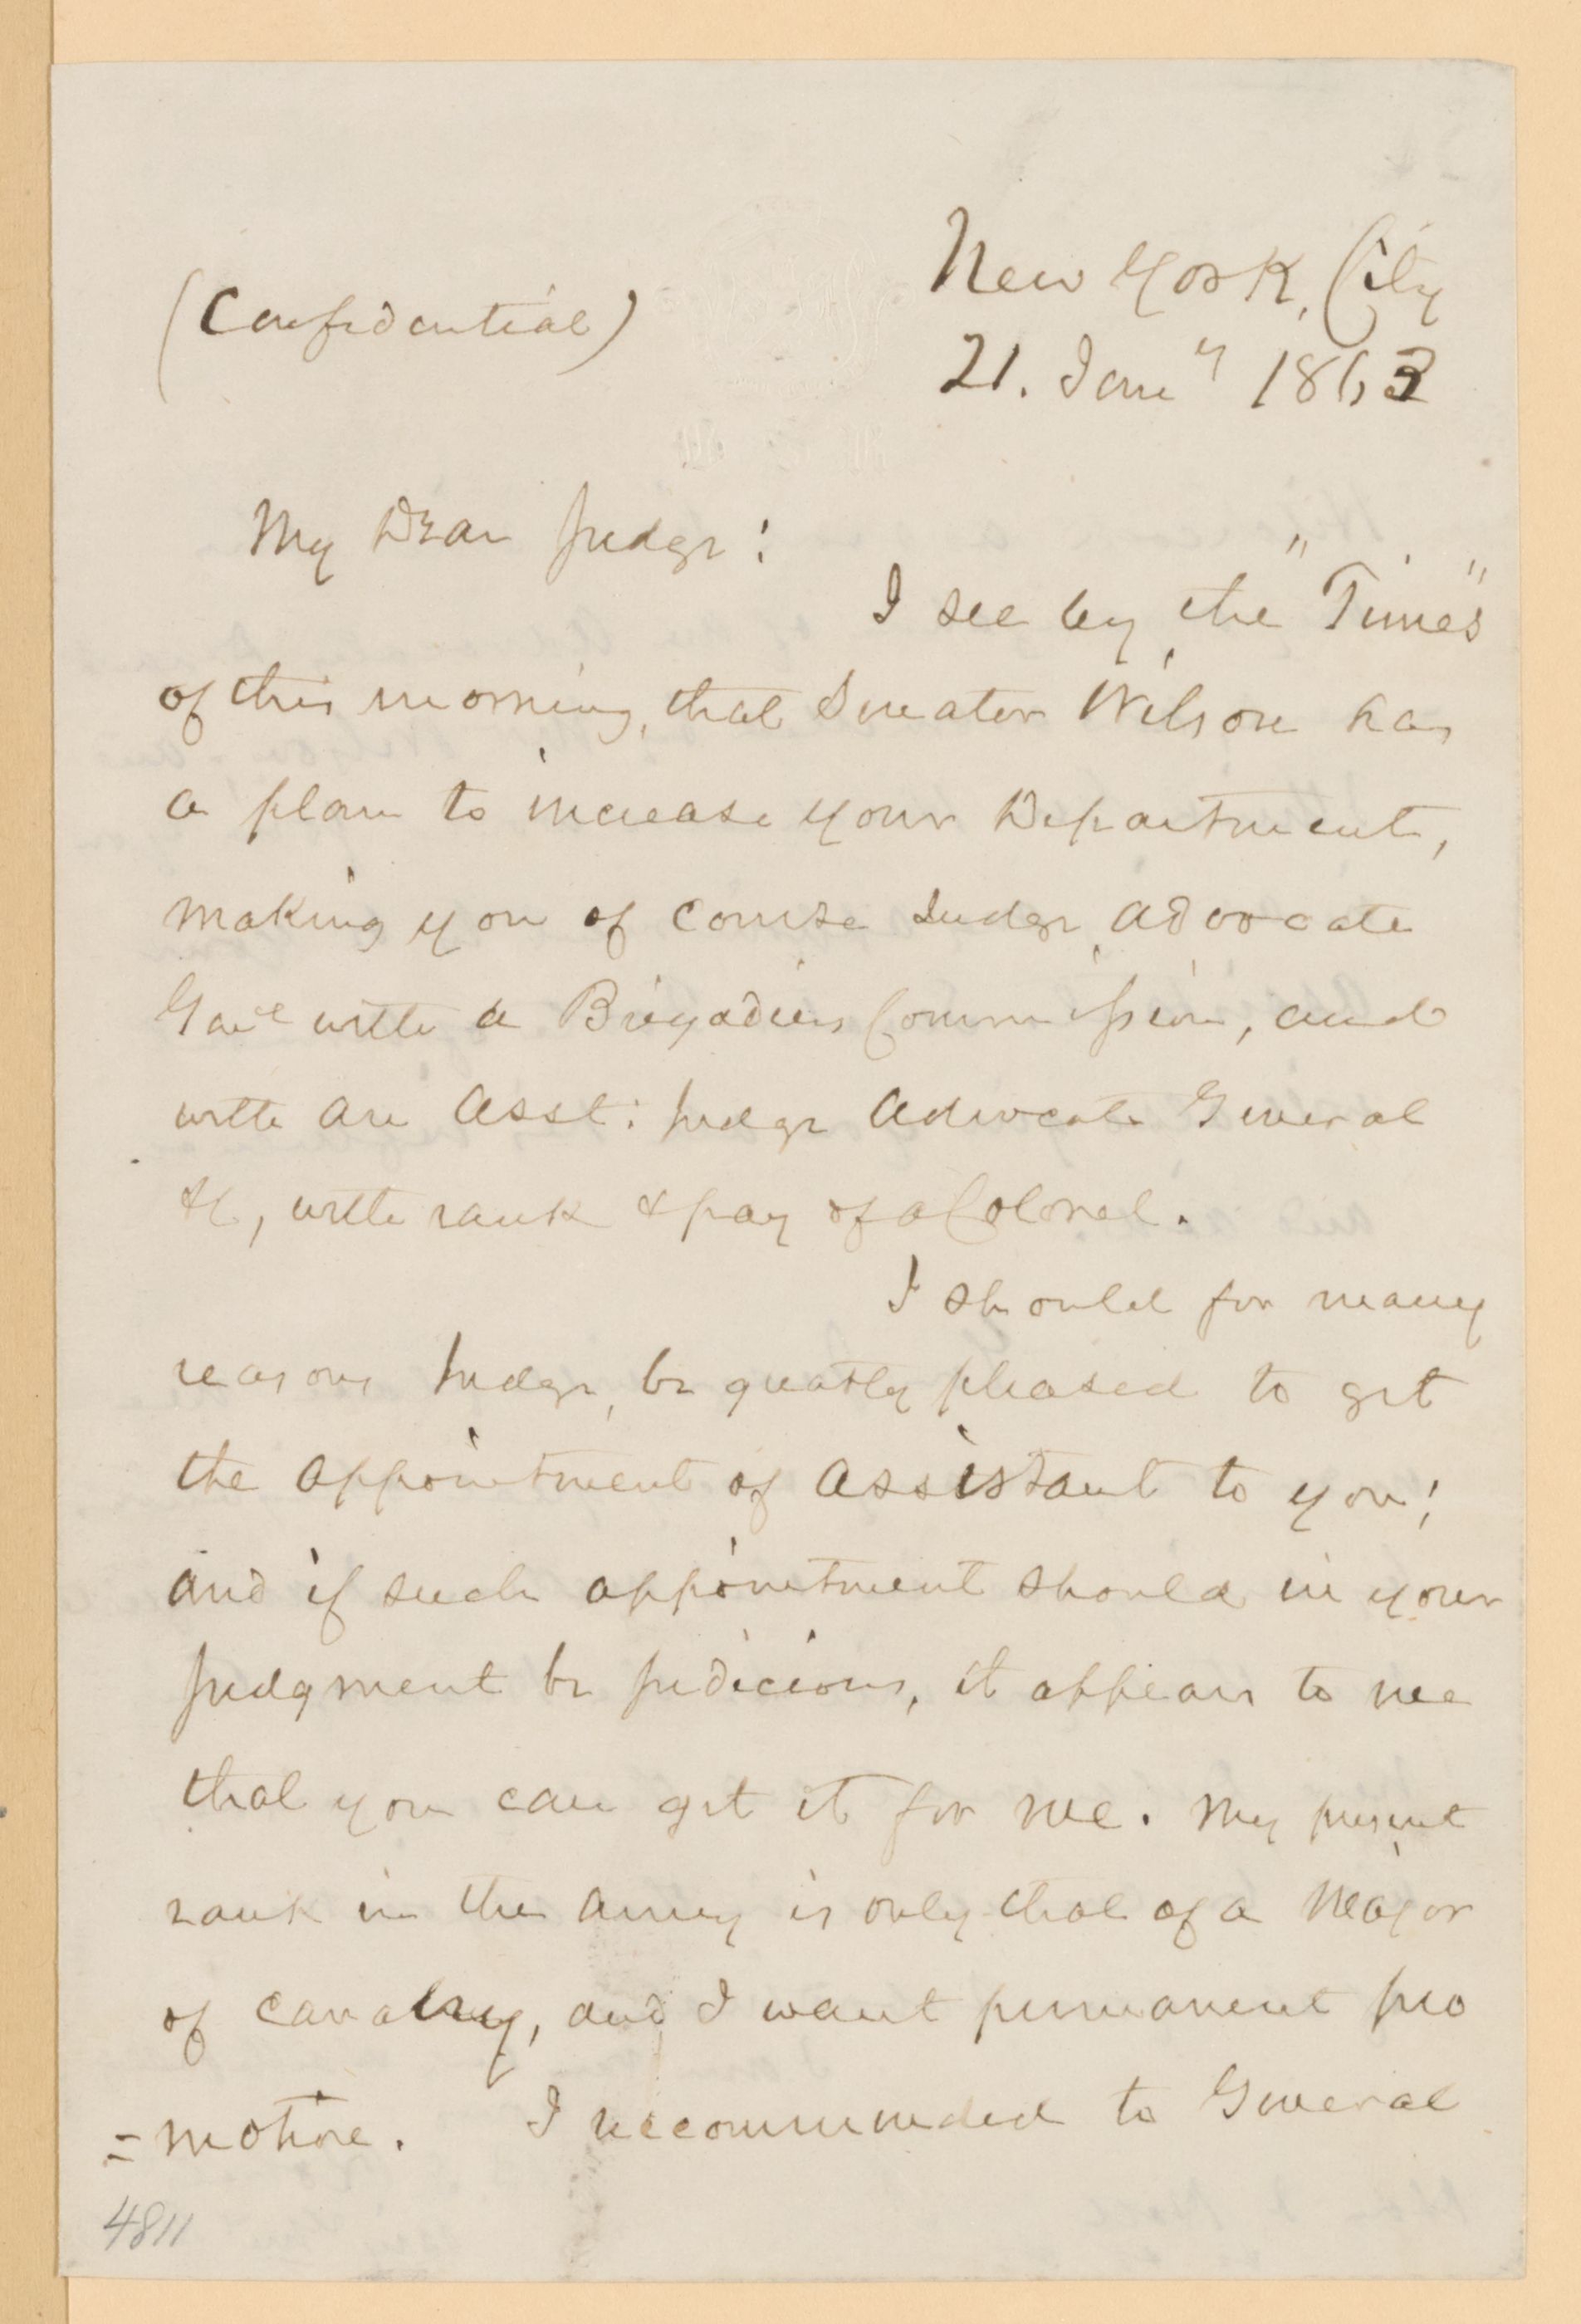 New York, City
(Confidential)
21. Jany 1863
My Dear Judge:
I see by the "Times"
of this morning, that Senator Wilson has
a plan to increase your Department,
making you of course Judge Advocate
Genl with a Brigadiers Commission, and
with an Asst: Judge Advocate General
&c, with rank & pay of a Colonel.
I should for many
reasons Judge, be greatly pleased to get
the appointment of Assistant to you;
and if such appointment should in your
judgment be judicious, it appears to me
that you can get it for me. My present
rank in the Army is only that of a Major
of cavalry, and I want permanent pro
=motion. I recommended to General
4811